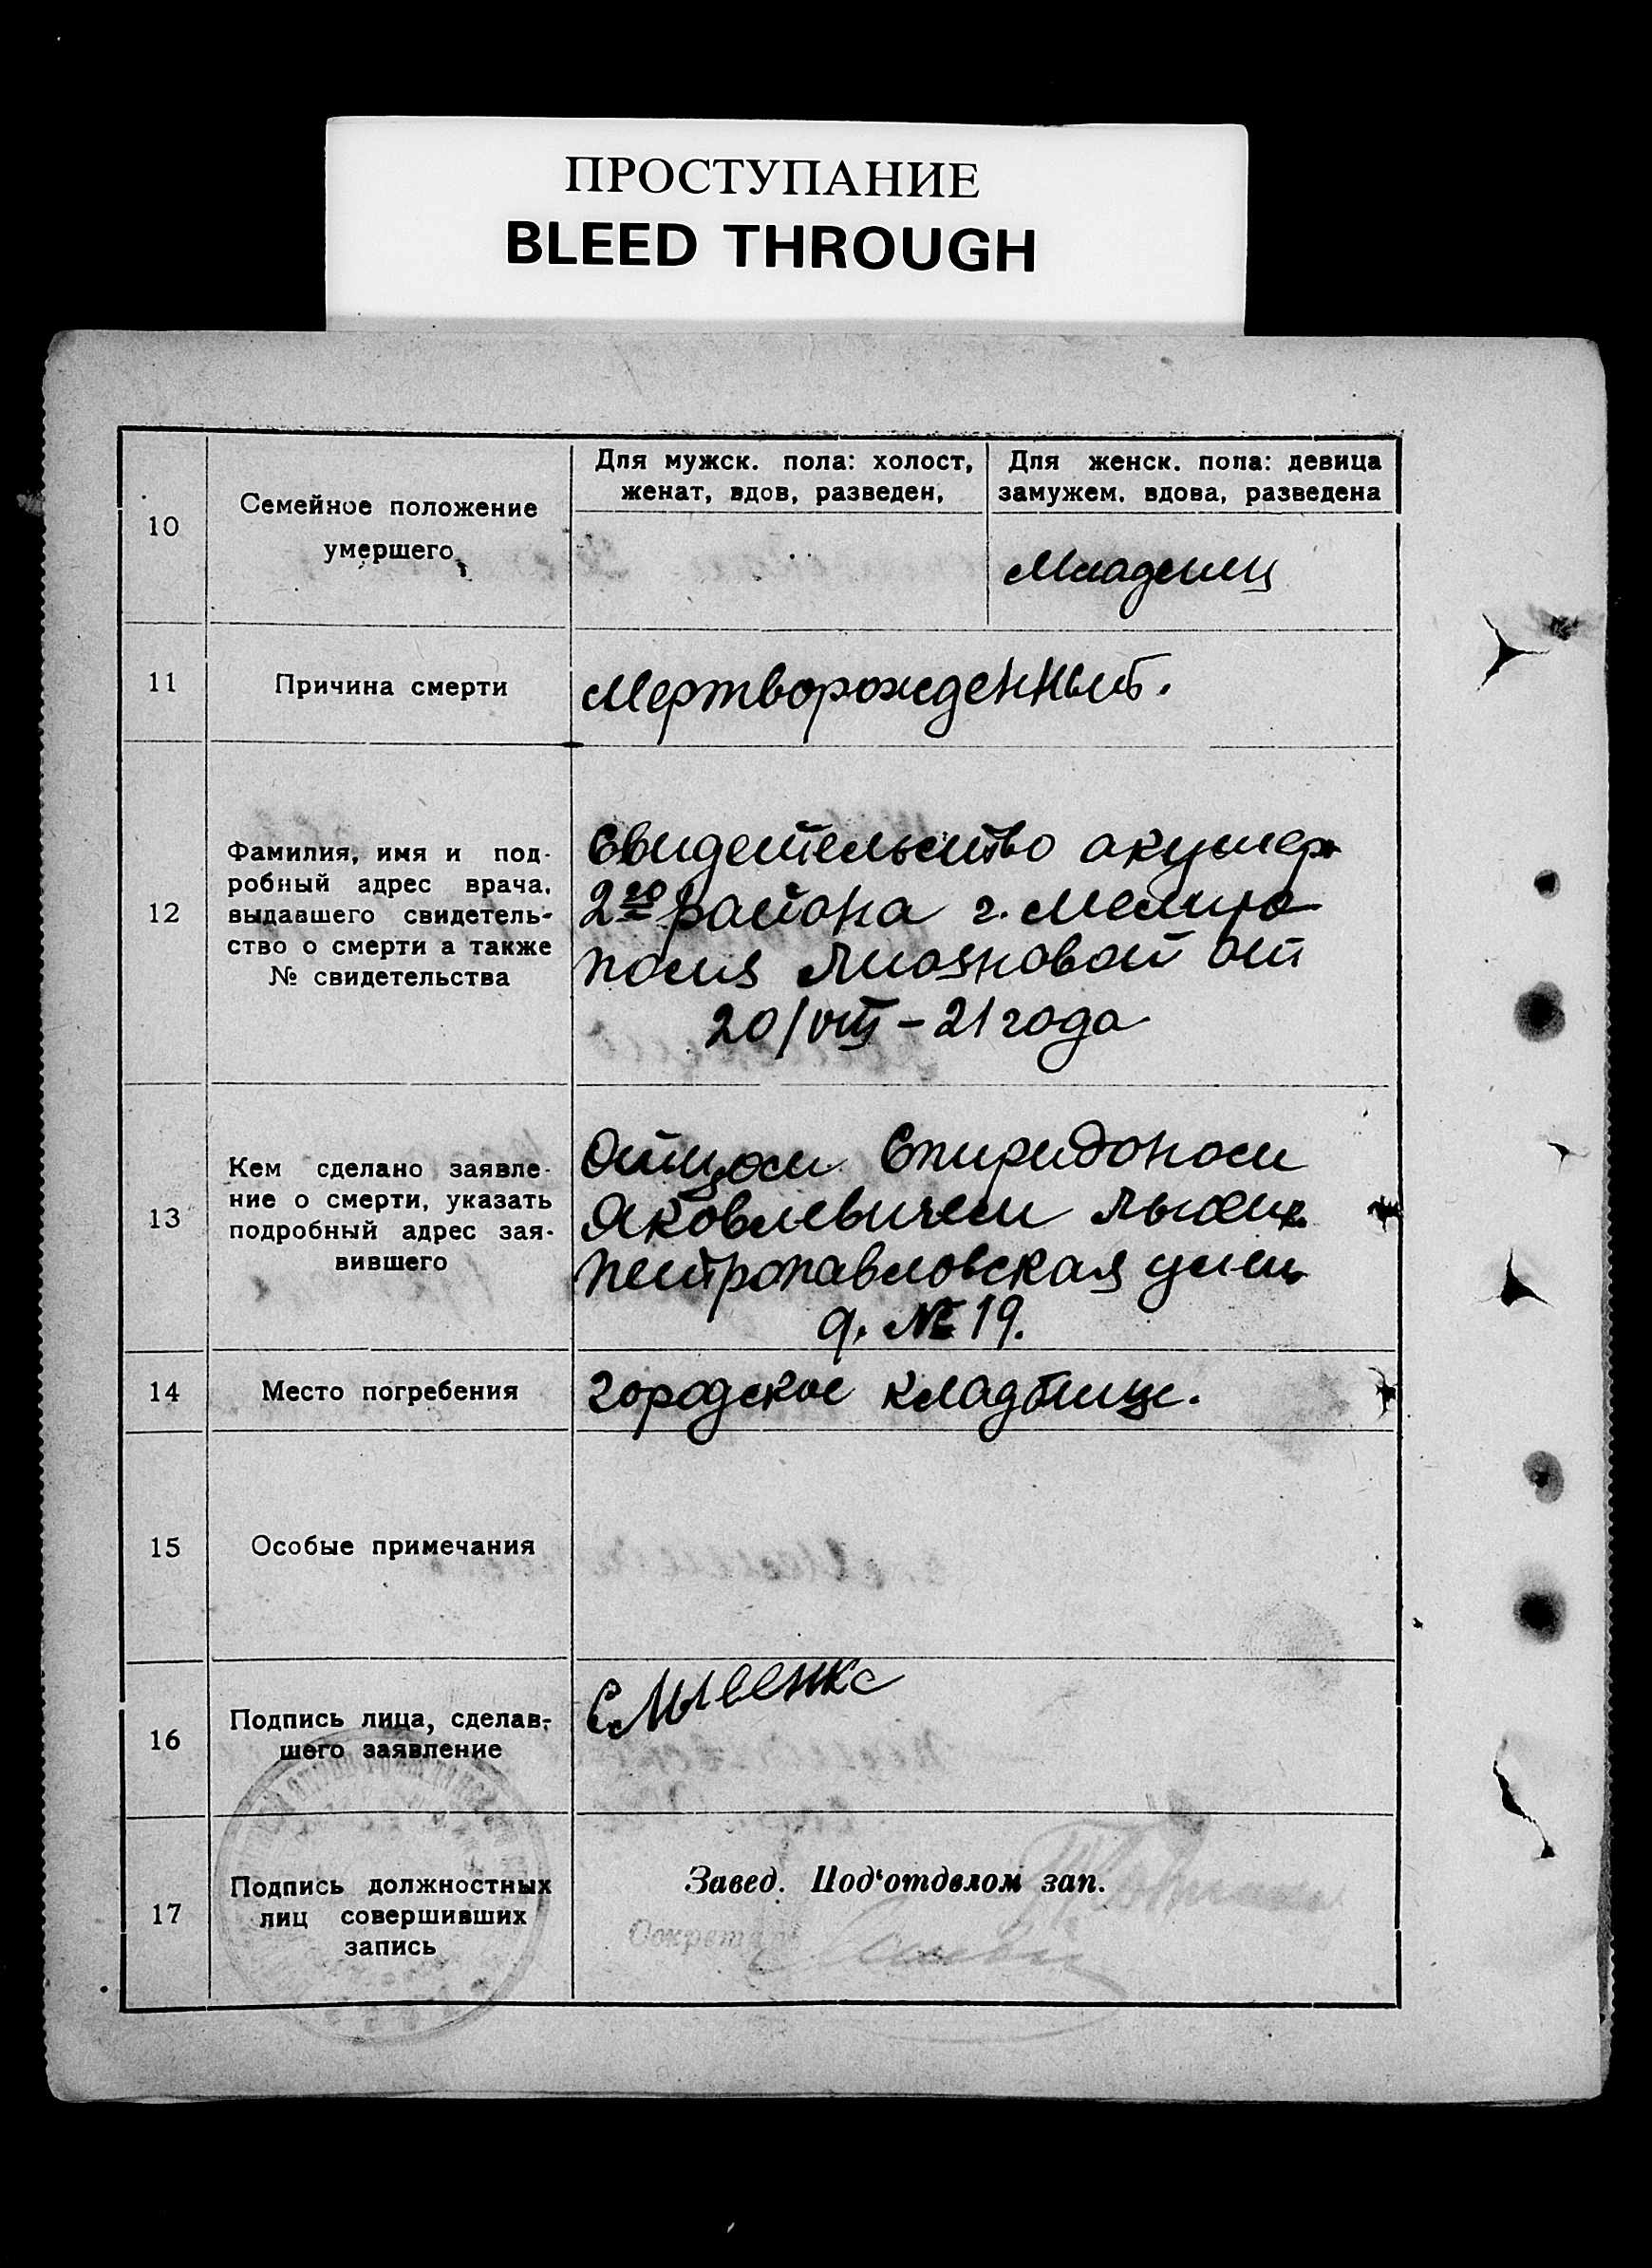 ПРОСТУПАНИЕ
BLEED THROUGH
10
Семейное положение
умершего
Для мужск. пола: холост,
женат, вдов, разведен,
Для женск. пола: девица
замужем. вдова, разведена
Младенец
11
Причина смерти
Мертворожденный.
12
Фамилия, имя и под-
робный адрес врача,
выдавшего свидетель-
ство о смерти а также
№ свидетельства
Свидетельство акушер
2го района г. Мелито
поля от
20/VIII – 21 года
13
Кем сделано заявле-
ние о смерти, указать
подробный адрес зая-
вившего
Отцом Спиридоном
Яковлевичем
Петропавловская улиц
д. № 19.
14
Место погребения
городское кладбище.
15
Особые примечания
16
Подпись лица, сделав-
шего заявление
17
Подпись должностных
лиц совершивших
запись
Завед. Под‘отделом зап.
Секретарь